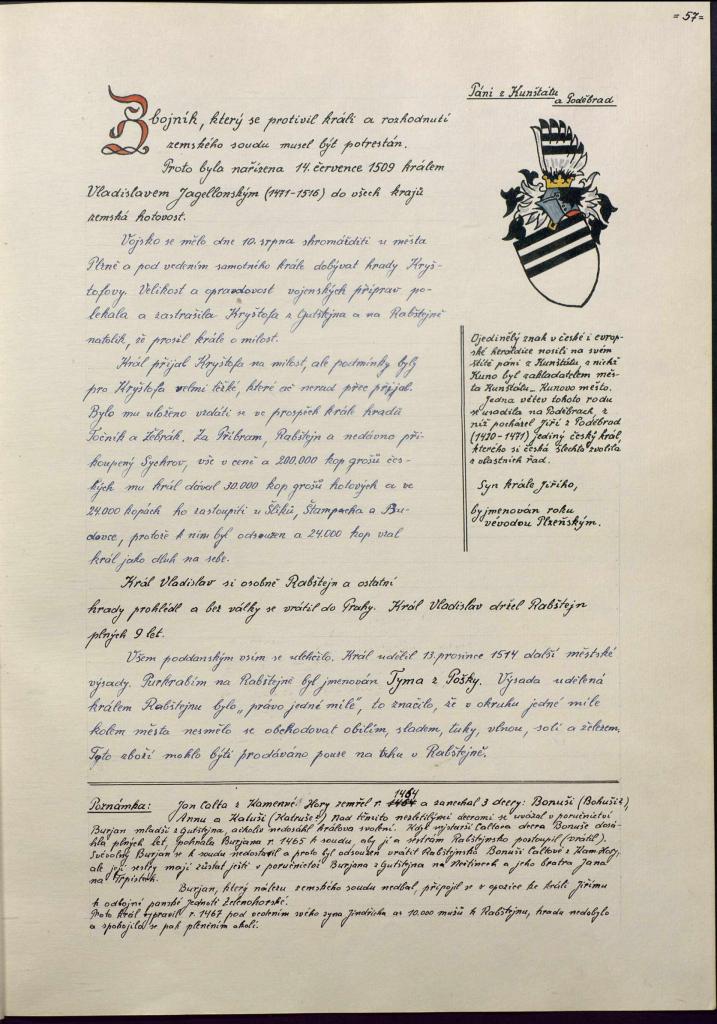 = 57 =
Páni z Kunštátu
a Poděbrad
Zbojník, který se protivil králi a rozhodnutí
zemského soudu musel být potrestán.
Proto byla nařízena 14. července 1509 králem
Vladislavem Jagellonským (1471-1516) do všech krajů
zemská hotovost.
Vojsko se mělo dne 10. srpna shromážditi u města
Plzně a pod vedením samotného krále dobývat hrady Kryš-
tofovy. Velikost a opravdovost vojenských příprav po-
lekala a zastrašila Kryštofa z Gutštejna a na Rabštejně
natolik, že prosil krále o milost.
Král přijal Kryštofa na milost, ale podmínky byly
pro Kryštofa velmi těžké, které ač nerad přec přijal.
Bylo mu uloženo vzdáti se ve prospěch krále hradů
Točník a Žebrák. Za Příbram, Rabštejn a nedávno při-
koupený Sychrov, vše v ceně a 200.000 kop grošů čes-
kých mu král dával 30.000 kop grošů hotových a ve
24.000 kopách ho zastoupiti u Šliků, Štampacha a Bu-
dovce, protože k nim byl odsouzen a 24.000 kop vzal
král jako dluh na sebe.
Král Vladislav si osobně Rabštejn a ostatní
hrady prohlédl a bez války se vrátil do Prahy. Král Vladislav držel Rabštejn
plných 9 let.
Všem poddanským vsím se ulehčilo. Král udělil 13. prosince 1514 další městské
výsady. Purkrabím na Rabštejně byl jmenován Tyma z Pošky. Výsada udělená
králem Rabštejnu bylo „právo jedné míle", to značilo, že v okruhu jedné míle
kolem města nesmělo se obchodovat obilím, sladem, tuky, vlnou, solí a železem.
Toto zboží mohlo býti prodáváno pouze na trhu v Rabštejně.
Ojedinělý znak v české i evrop-
ské heraldice nosili na svém
štítě páni z Kunštátu, z nichž
Kuno byl zakladatelem měs-
ta Kunštátu - Kunovo město.
Jedna větev tohoto rodu
se usadila na Poděbrach, z
níž pocházel Jiří z Poděbrad
(1420-1471) jediný český král,
kterého si česká šlechta zvolila
z vlastních řad.
Syn krále Jiřího,
byl jmenován roku
vévodou Plzeňským.
Poznámka: Jan Calta z Kamenné Hory zemřel r. 1464 a zanechal 3 dcery: Bonuši (Bohuši?),
Annu a Katuši (Katruše?) Nad těmito nezletilými dcerami se uvázal v poručnictví
Burjan mladší z Gutštejna, ačkoliv nedosáhl králova svolení. Když nejstarší Caltova dcera Bonuše dosá-
hla plných let, pohnala Burjana r. 1465 k soudu, aby jí a sestrám Rabštejnsko postoupil (vrátil).
Svévolný Burjan se k soudu nedostavil a proto byl odsouzen vrátit Rabštejnsko Bonuši Caltové z Kam. Hory,
ale její sestry mají zůstat ještě v poručnictví Burjana z Gutštejna na Nečtinech a jeho bratra Jana
na Trpístech.
Burjan, který nálezu zemského soudu nedbal, připojil se v opozice ke králi Jiřímu
k odbojné panské Jednotě Zelenohorské.
Proto král vypravil r. 1467 pod vedením svého syna Jindřicha as 10.000 mužů k Rabštejnu, hradu nedobylo
a spokojilo se pak pleněním okolí.